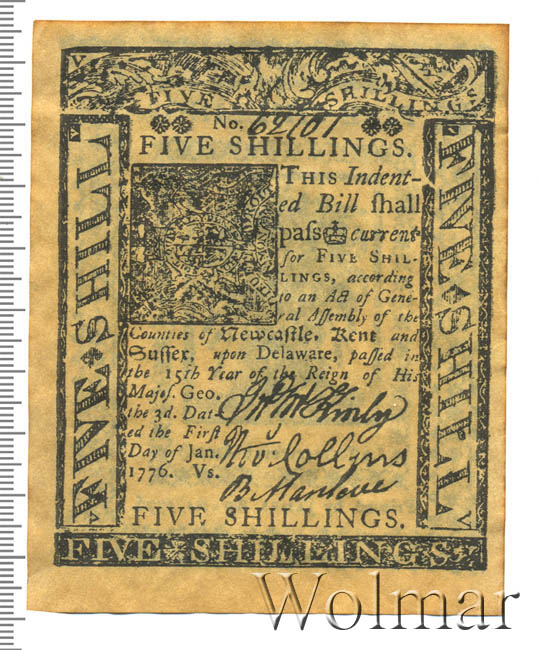 FIVE SHILLINGS
No. 62101
FIVE SHILLINGS.
THIS Indent-
ed Bill ſhall
paſs current
for FIVE SHIL-
LINGS, according
to an Act of Gene-
ral Aſſembly of the
Counties of Newcaſtle, Kent and
Suſſex, upon Delaware, paſſed in
the 15th Year of the Reign of His
Majeſ. Geo.
the 3d. Dat-
ed the Firſt
Day of Jan.
1776. Vs.
Collyns
B Manlove
FIVE SHILLINGS.
FIVE SHILLINGS
FIVE SHILL
FIVE SHILL
V
V
V
V
V
Wolmar